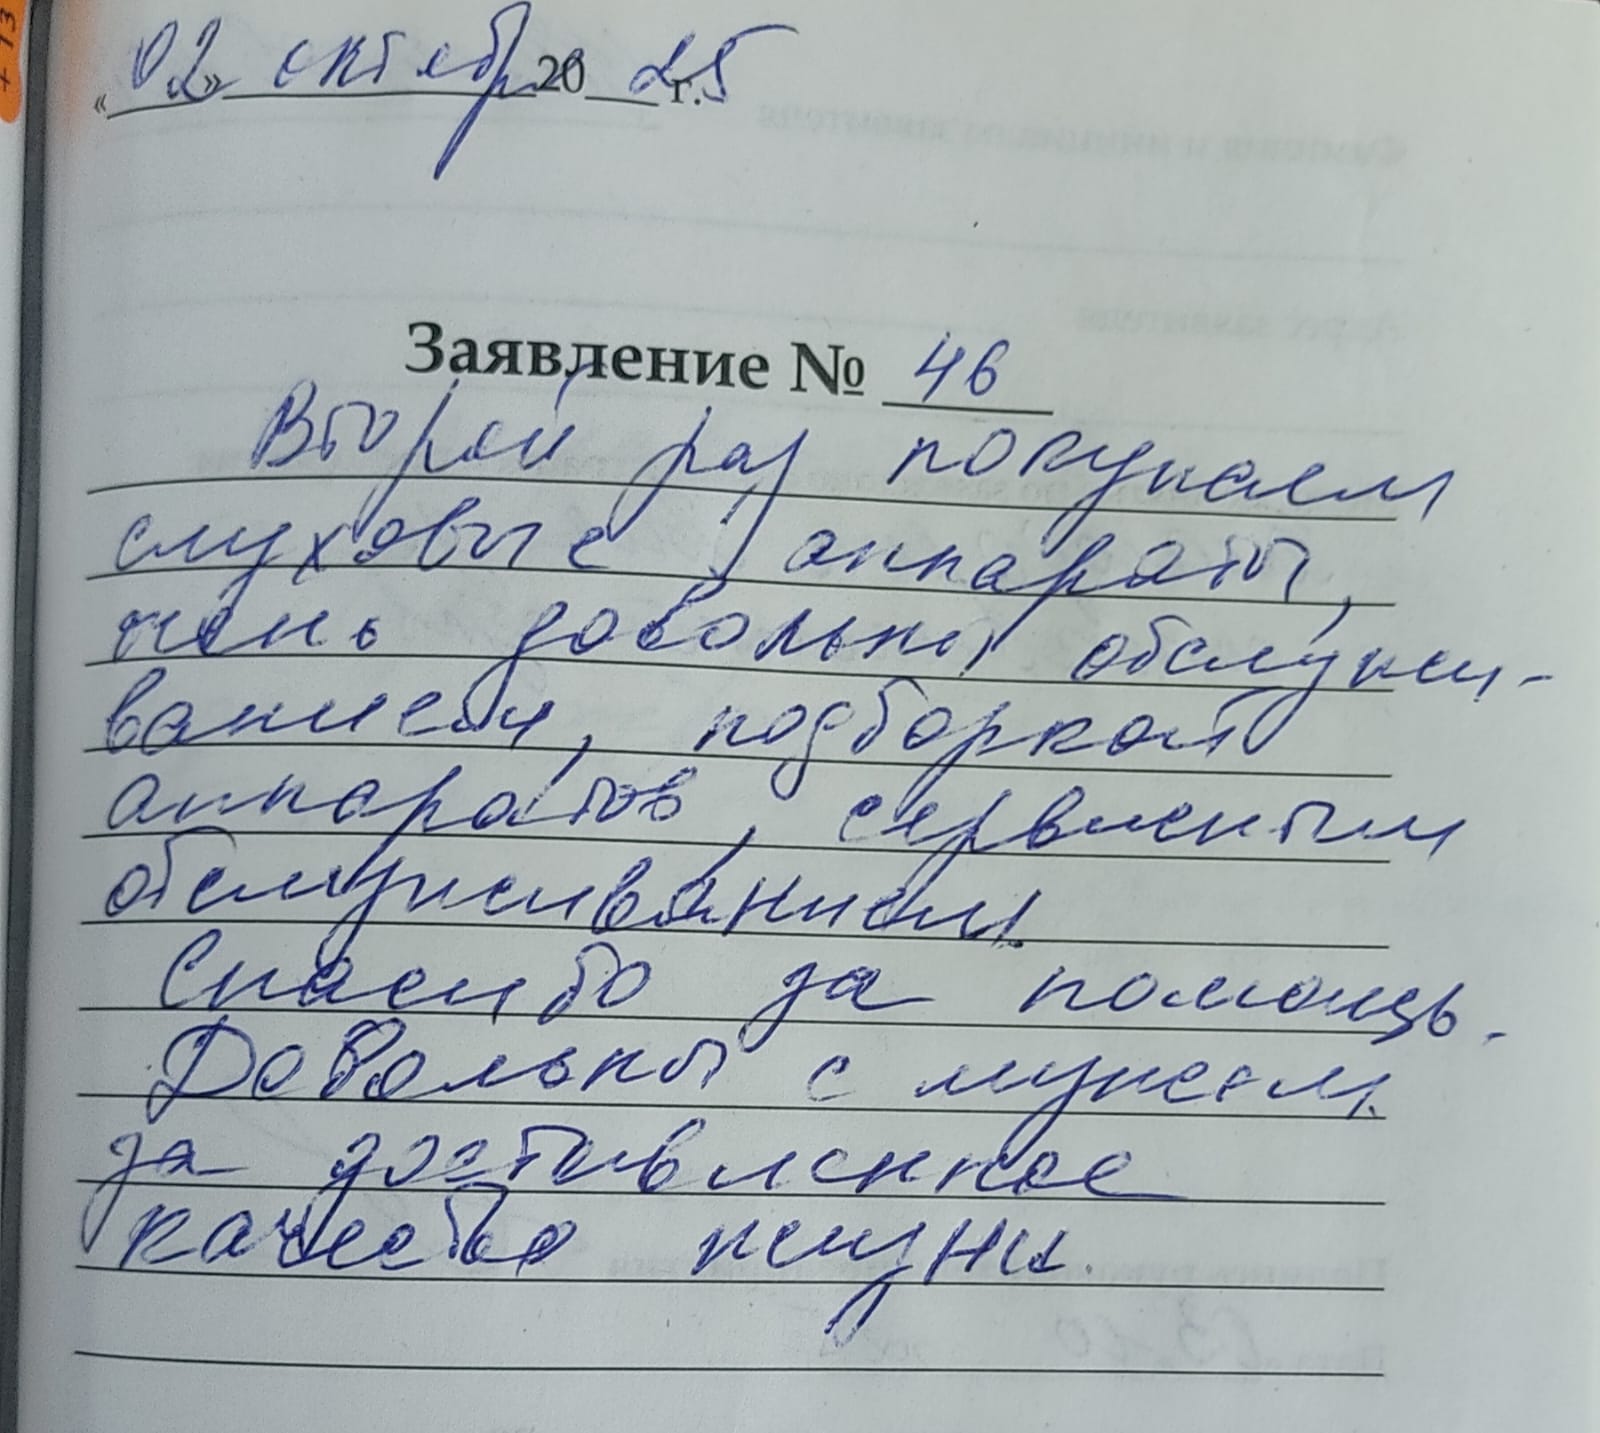 «02» октябр 2025 г.
Заявление № 46
Второй раз покупаем
слуховые аппараты,
очень довольны обслужи-
ванием, подборкой
аппаратов, сервисным
обслуживанием.
Спасибо за помощь.
Довольны с мужем
за доставленное
качество жизни.